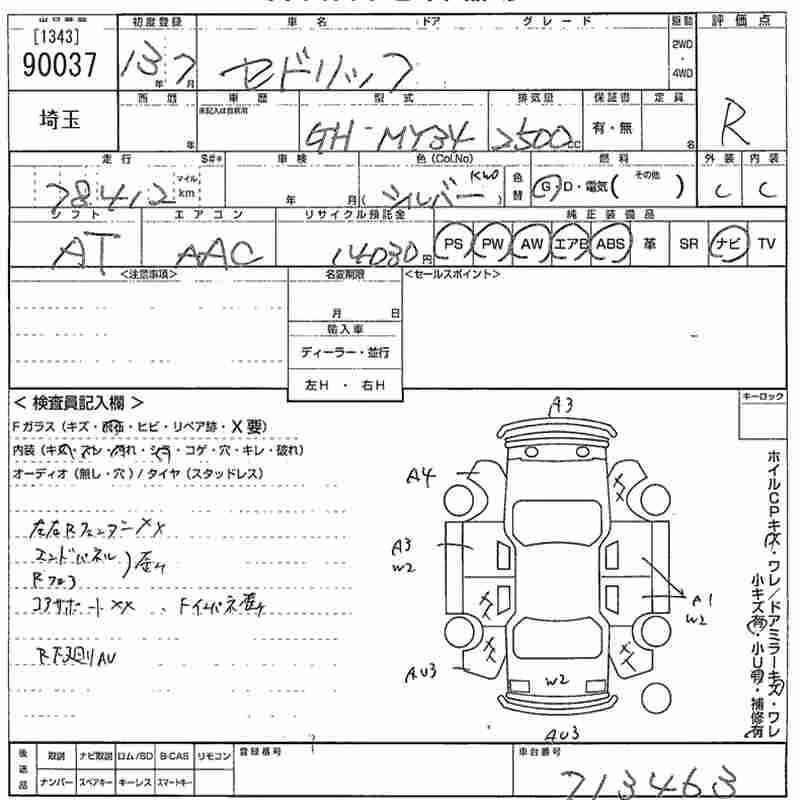 [1343]
90037
初度登録 車名 ドア グレード 駆動 評価点
13年 7月 セドリック 2WD・4WD
埼玉
西暦 車歴 型式 排気量 保証書 定員
未記入は自家用
年 GH-MY34 2500cc 有・無 名 R
走行 S#* 車検 色(Col.No) 燃料 外装 内装
78412 マイル km 年 月 ( シルバー KW0 ) 色替 G・D・電気( その他 ) C C
シフト エアコン リサイクル預託金 純正装備品
AT AAC 14030円 PS PW AW エアB ABS 革 SR ナビ TV
<注意事項> 名変期限 <セールスポイント>
月 日
輸入車
ディーラー・並行
左H・右H
<検査員記入欄> キーロック
Fガラス(キズ・飛石・ヒビ・リペア跡・X要)
内装(キズ・スレ・汚れ・シミ・コゲ・穴・キレ・破れ)
オーディオ(無し・穴)/タイヤ(スタッドレス)
左右Rフェンダー××
エンドパネル
Rフロ
コアサポート××、
R下廻りAU
A3
A4
A3
W2
A1
W2
AU3
W2
AU3
ホイルCPキズ・ワレ/ドアミラーキズ・ワレ
小キズ有・小U有・補修有
後送品 取説 ナビ取説 ロム/SD B-CAS リモコン 登録番号 車台番号
ナンバー スペアキー キーレス スマートキー 713463